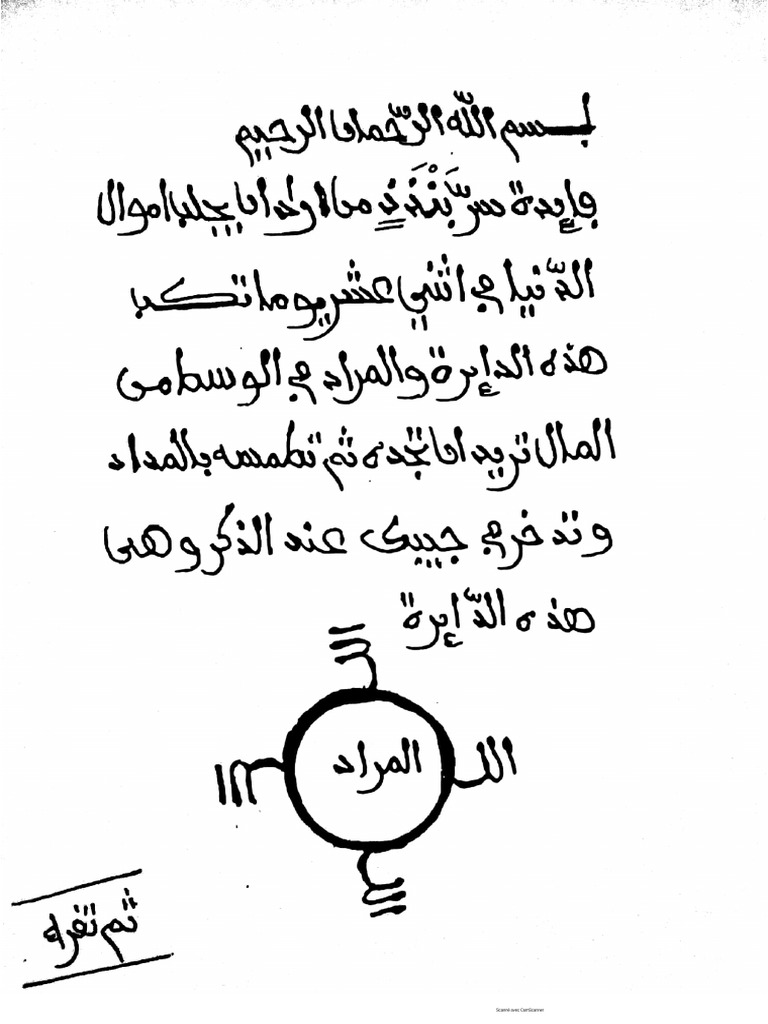 بسم الله الرّحمان الرحيم
فإيدة سرّ بَنْدَنٍ من اراد ان يجلب اموال
الدّنيا في اثني عشر يوما تكتب
هذه الدإيرة والمراد في الوسط من
المال تريد ان تجده ثم تطمسه بالمداد
وتدخر في جيبك عند الذكر وهى
هذه الدّإيرة
الله
المراد
الله
الله
الله
ثم تقراه
Scanné avec CamScanner